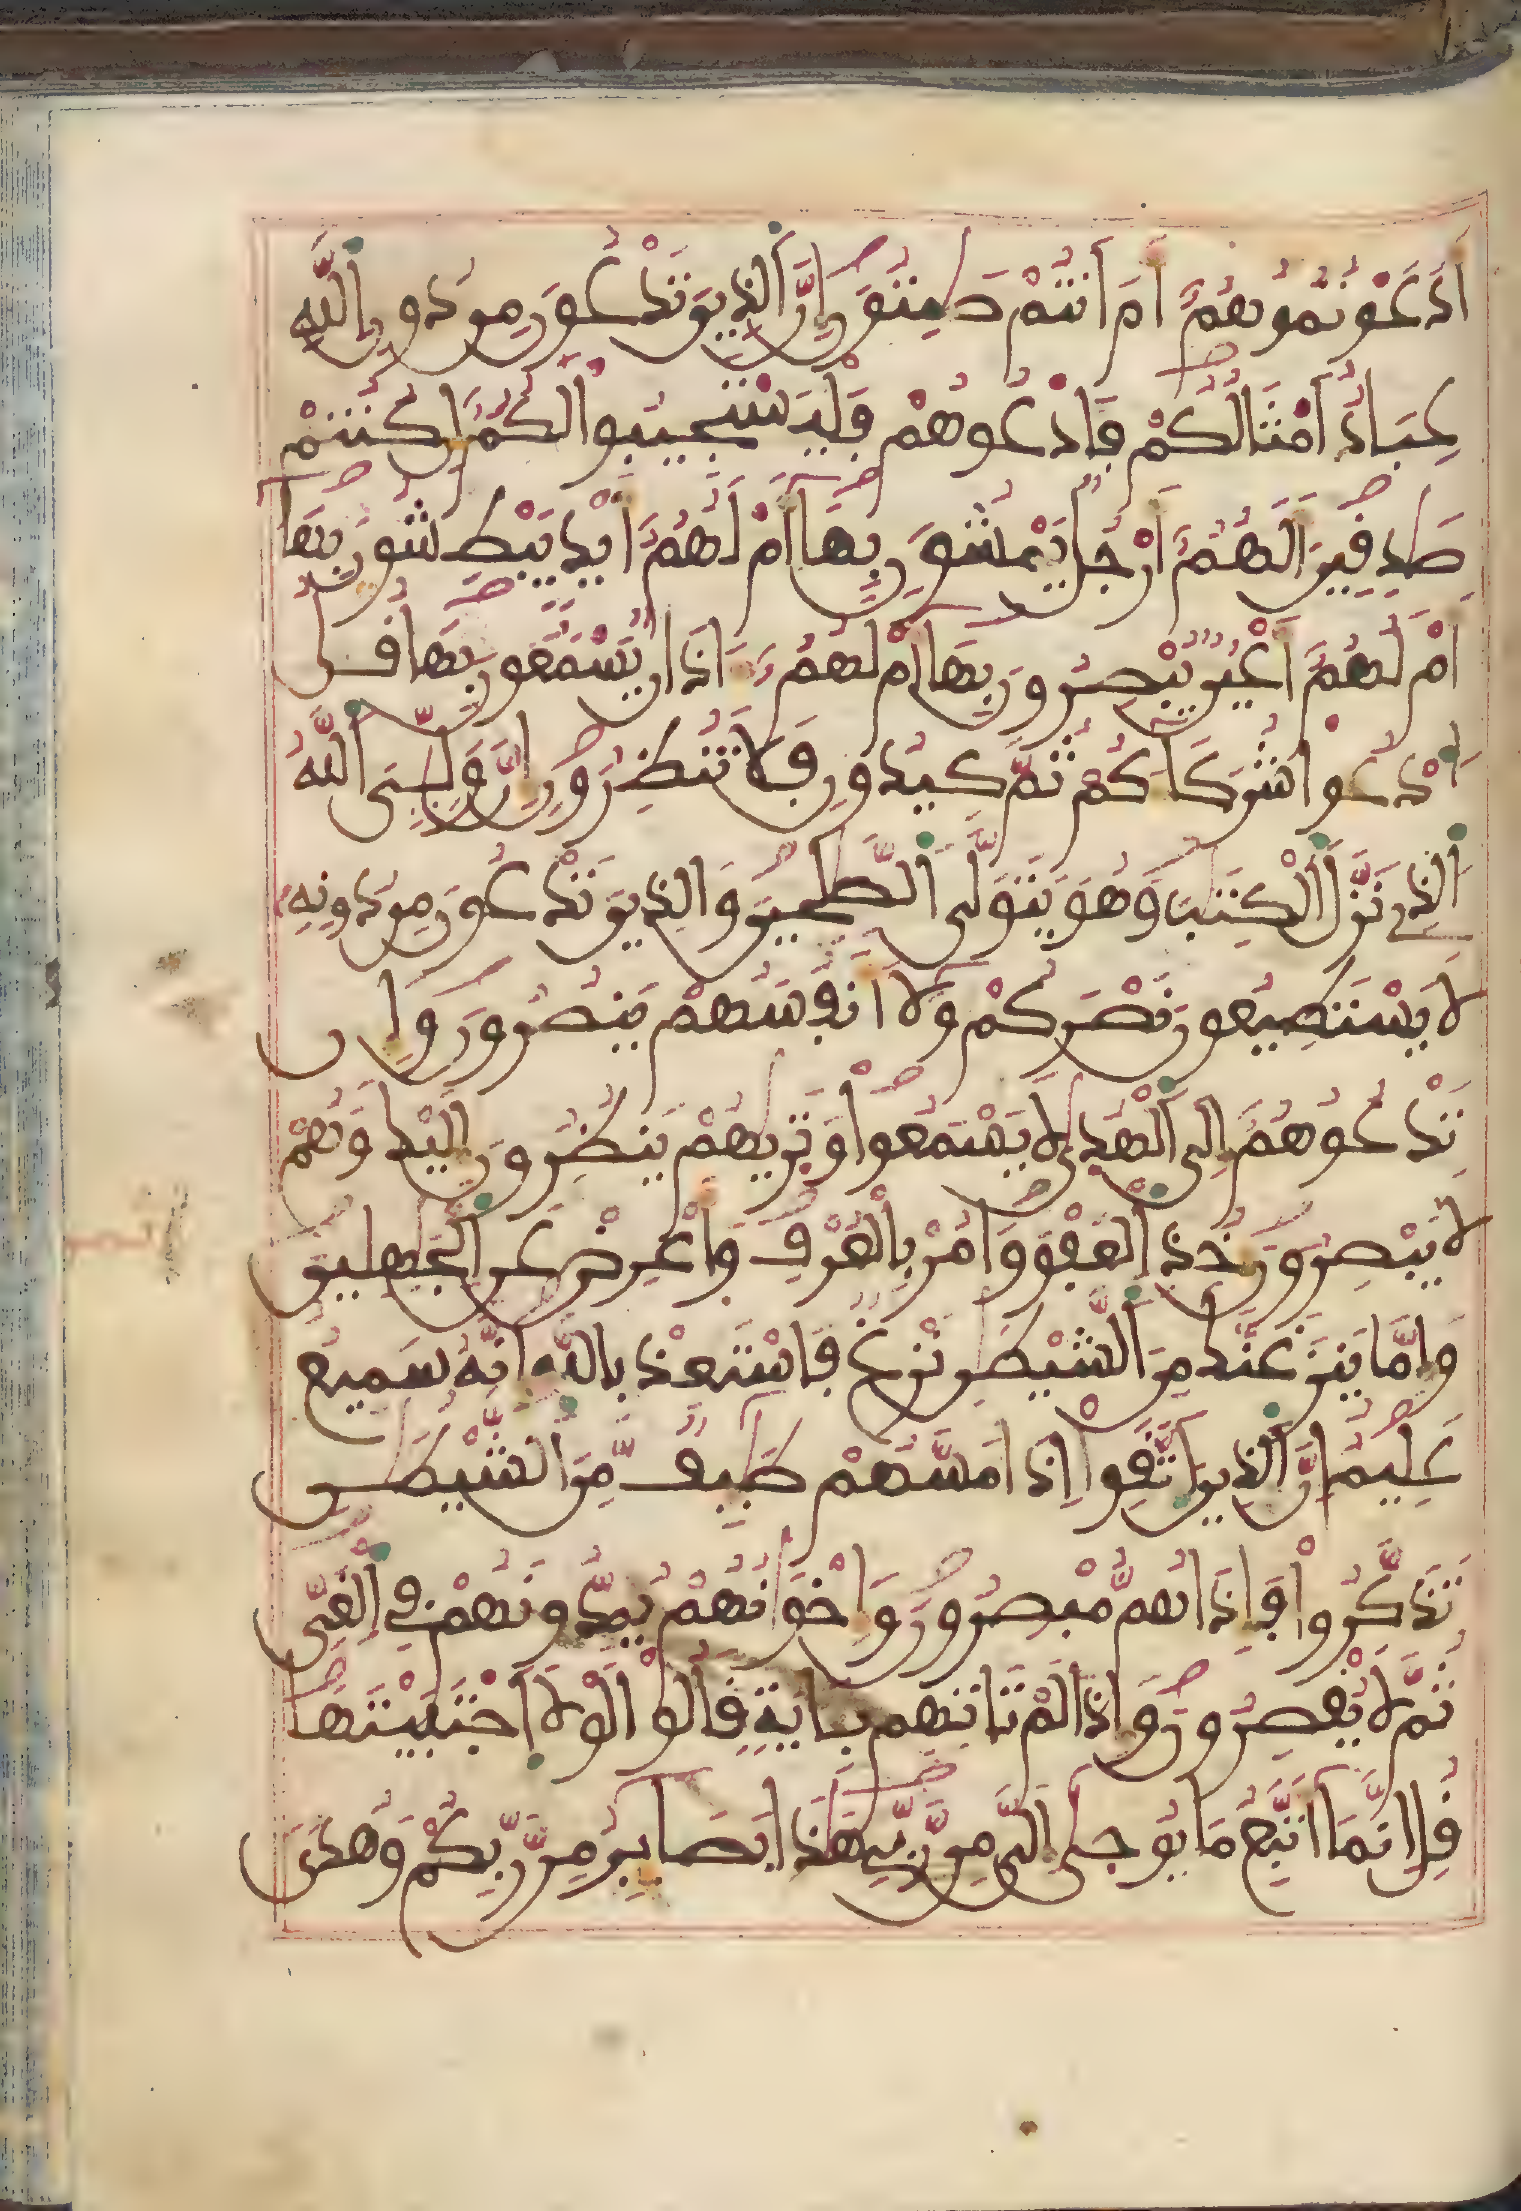 أَدَعَوْتُمُوهُمُۥٓ أَمَ اَنتُمْ صَٰمِتُونَ إِنَّ ٱلذِينَ تَدْعُونَ مِن دُونِ ٱللَّهِ
عِبَادٌ اَمْثَالُكُمْ فَادْعُوهُمْ فَلْيَسْتَجِيبُوا۟ لَكُمُۥٓ إِن كُنتُمْ
صَٰدِقِينَ أَلَهُمُۥٓ أَرْجُلٌ يَمْشُونَ بِهَآ أَمْ لَهُمُۥٓ أَيْدٍ يَبْطِشُونَ بِهَآ
أَمْ لَهُمُۥٓ أَعْيُنٌ يُبْصِرُونَ بِهَآ أَمْ لَهُمُۥٓ ءَاذَانٌ يَسْمَعُونَ بِهَا قُلُ
ٱدْعُوا۟ شُرَكَآءَكُمْ ثُمَّ كِيدُونِ فَلَا تُنظِرُونِ إِنَّ وَلِـِّۧيَ ٱللَّهُ
ٱلذِے نَزَّلَ ٱلْكِتَٰبَ وَهُوَ يَتَوَلَّى ٱلصَّٰلِحِينَ وَالذِينَ تَدْعُونَ مِن دُونِهِۦ
لَا يَسْتَطِيعُونَ نَصْرَكُمْ وَلَآ أَنفُسَهُمْ يَنصُرُونَ وَإِن
تَدْعُوهُمُۥٓ إِلَى ٱلْهُدَىٰ لَا يَسْمَعُوا۟ وَتَرَىٰهُمْ يَنظُرُونَ إِلَيْكَ وَهُمْ
لَا يُبْصِرُونَ خُذِ ٱلْعَفْوَ وَامُرْ بِالْعُرْفِ وَأَعْرِضْ عَنِ ٱلْجَٰهِلِينَ
وَإِمَّا يَنزَغَنَّكَ مِنَ ٱلشَّيْطَٰنِ نَزْغٌ فَاسْتَعِذْ بِاللَّهِ إِنَّهُۥ سَمِيعٌ
عَلِيمٌ إِنَّ ٱلذِينَ ٱتَّقَوِا۟ اِذَا مَسَّهُمْ طَٰٓئِفٌ مِّنَ ٱلشَّيْطَٰنِ
تَذَكَّرُوا۟ فَإِذَا هُم مُّبْصِرُونَ وَإِخْوَٰنُهُمْ يُمِدُّونَهُمْ فِي ٱلْغَيِّ
ثُمَّ لَا يُقْصِرُونَ وَإِذَا لَمْ تَاتِهِم بِـَٔايَةٍ قَالُوا۟ لَوْلَا ٱجْتَبَيْتَهَا
قُلِ اِنَّمَآ أَتَّبِعُ مَا يُوحَىٰٓ إِلَيَّ مِن رَّبِّي هَٰذَا بَصَآئِرُ مِن رَّبِّكُمْ وَهُدىً